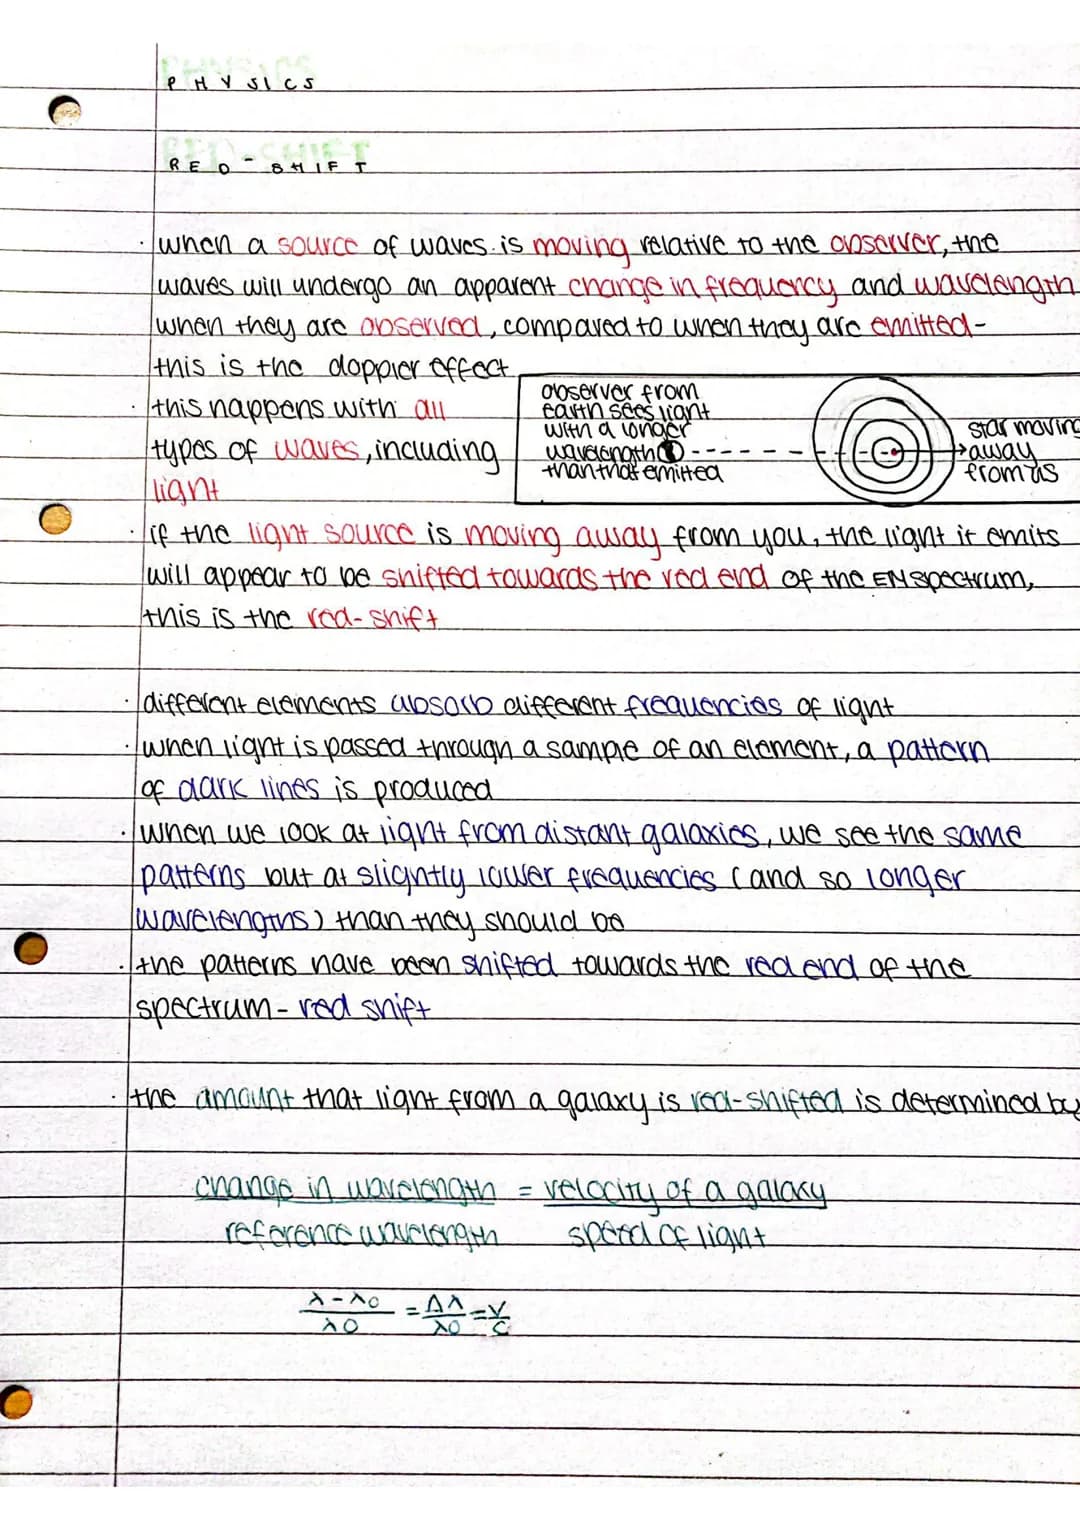 PHYSICS
RED-SHIFT
· when a source of waves is moving relative to the observer, the
waves will undergo an apparent change in frequency and wavelength
when they are observed, compared to when they are emitted -
this is the doppler effect
· this happens with all
types of waves, including
light
observer from
earth sees light
with a longer
wavelength
than that emitted
star moving
away
from us
· if the light source is moving away from you, the light it emits
will appear to be shifted towards the red end of the EM spectrum,
this is the red-shift
· different elements absorb different frequencies of light
· when light is passed through a sample of an element, a pattern
of dark lines is produced
· when we look at light from distant galaxies, we see the same
patterns but at slightly lower frequencies (and so longer
wavelengths) than they should be
· the patterns have been shifted towards the red end of the
spectrum - red shift
· the amount that light from a galaxy is red-shifted is determined by
change in wavelength = velocity of a galaxy
reference wavelength speed of light
λ-λ0 = Δλ = v
λ0 λ0 c